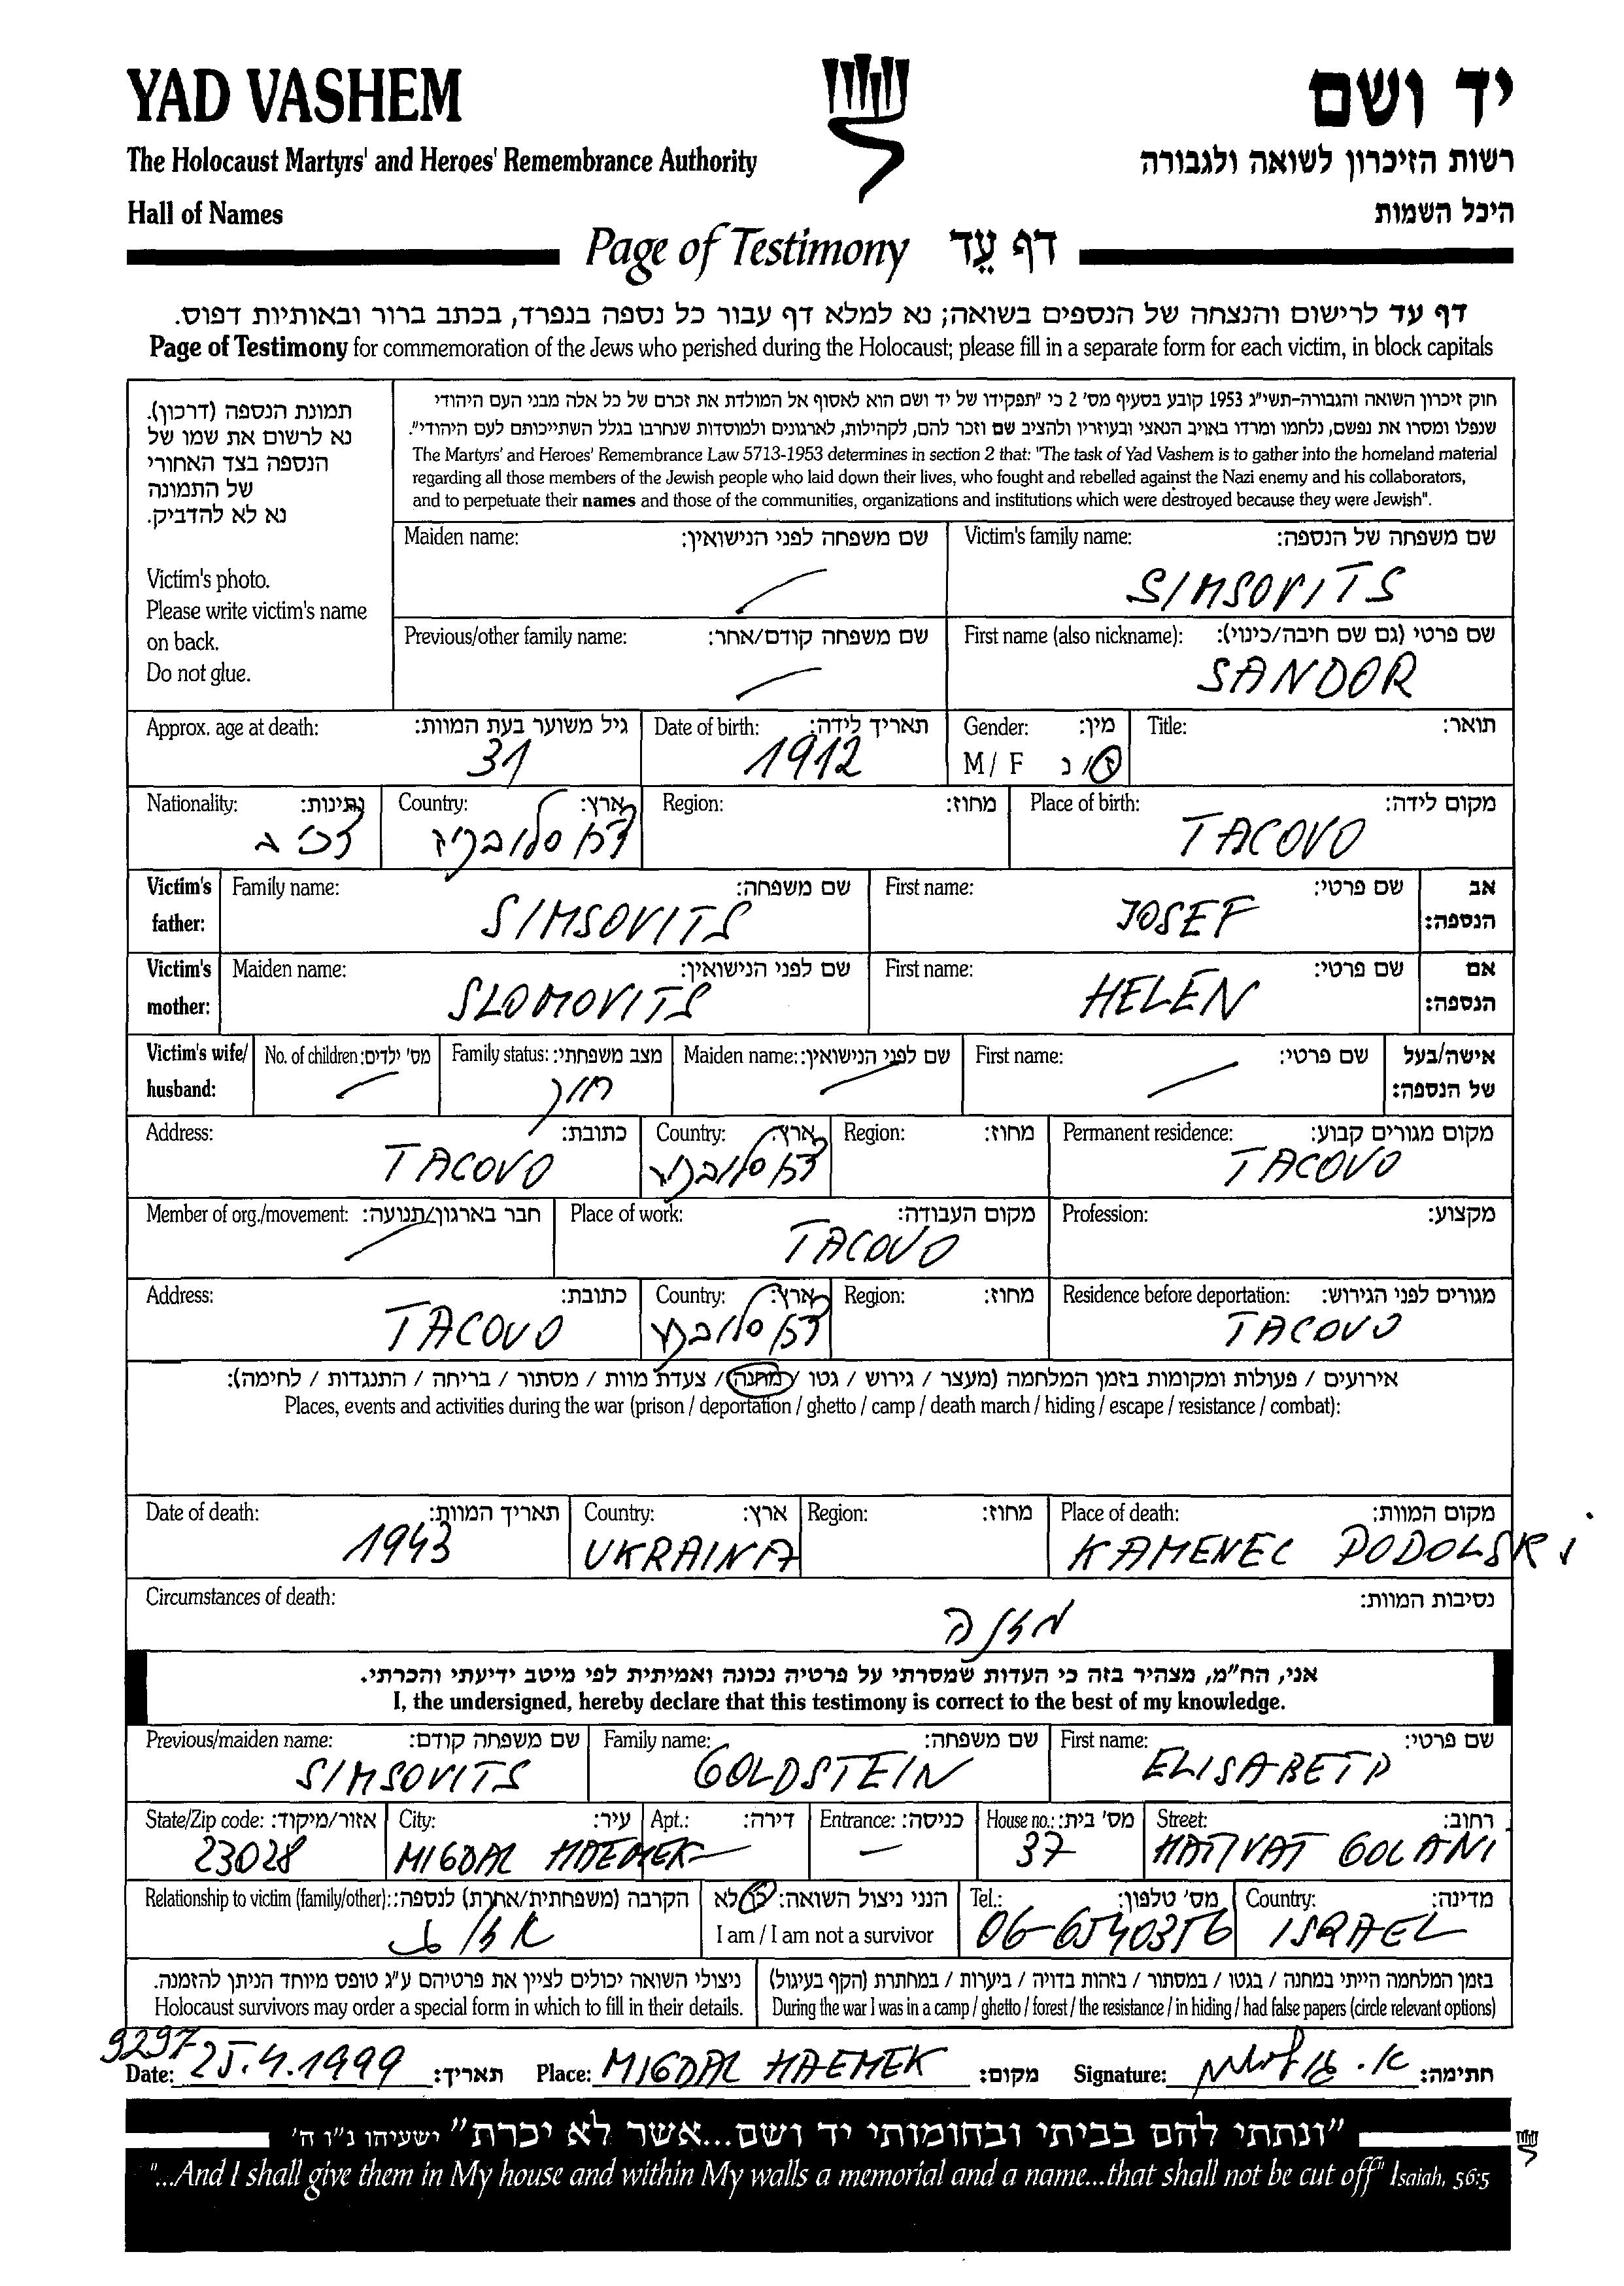 YAD VASHEM
יד ושם
The Holocaust Martyrs' and Heroes' Remembrance Authority
רשות הזיכרון לשואה ולגבורה
Hall of Names
היכל השמות
Page of Testimony דף עֵד
דף עד לרישום והנצחה של הנספים בשואה; נא למלא דף עבור כל נספה בנפרד, בכתב ברור ובאותיות דפוס.
Page of Testimony for commemoration of the Jews who perished during the Holocaust; please fill in a separate form for each victim, in block capitals
תמונת הנספה (דרכון).
נא לרשום את שמו של
הנספה בצד האחורי
של התמונה
נא לא להדביק.
Victim's photo.
Please write victim's name
on back.
Do not glue.
חוק זיכרון השואה והגבורה-תשי"ג 1953 קובע בסעיף מס' 2 כי "תפקידו של יד ושם הוא לאסוף אל המולדת את זכרם של כל אלה מבני העם היהודי
שנפלו ומסרו את נפשם, נלחמו ומרדו באויב הנאצי ובעוזריו ולהציב שם וזכר להם, לקהילות, לארגונים ולמוסדות שנחרבו בגלל השתייכותם לעם היהודי".
The Martyrs' and Heroes' Remembrance Law 5713-1953 determines in section 2 that: "The task of Yad Vashem is to gather into the homeland material
regarding all those members of the Jewish people who laid down their lives, who fought and rebelled against the Nazi enemy and his collaborators,
and to perpetuate their names and those of the communities, organizations and institutions which were destroyed because they were Jewish".
Maiden name: שם משפחה לפני הנישואין: Victim's family name: שם משפחה של הנספה:
SIMSOVITS
Previous/other family name: שם משפחה קודם/אחר: First name (also nickname): שם פרטי (גם שם חיבה/כינוי):
SANDOR
Approx. age at death: גיל משוער בעת המוות: Date of birth: תאריך לידה: Gender: מין: Title: תואר:
31 1912 M / F ז / נ
Nationality: נתינות: Country: ארץ: Region: מחוז: Place of birth: מקום לידה:
צכ'ב צ'כסלובקיה TACOVO
Victim's father: Family name: שם משפחה: First name: שם פרטי: אב הנספה:
SIMSOVITS JOSEF
Victim's mother: Maiden name: שם לפני הנישואין: First name: שם פרטי: אם הנספה:
SLOMOVITS HELEN
Victim's wife/ husband: No. of children: מס' ילדים: Family status: מצב משפחתי: Maiden name: שם לפני הנישואין: First name: שם פרטי: אישה/בעל של הנספה:
Address: כתובת: Country: ארץ: Region: מחוז: Permanent residence: מקום מגורים קבוע:
TACOVO צ'כסלובקיה TACOVO
Member of org./movement: חבר בארגון/תנועה: Place of work: מקום העבודה: Profession: מקצוע:
TACOVO
Address: כתובת: Country: ארץ: Region: מחוז: Residence before deportation: מגורים לפני הגירוש:
TACOVO צ'כסלובקיה TACOVO
אירועים / פעולות ומקומות בזמן המלחמה (מעצר / גירוש / גטו / מחנה / צעדת מוות / מסתור / בריחה / התנגדות / לחימה):
Places, events and activities during the war (prison / deportation / ghetto / camp / death march / hiding / escape / resistance / combat):
Date of death: תאריך המוות: Country: ארץ: Region: מחוז: Place of death: מקום המוות:
1943 UKRAINA KAMENEC PODOLSKI
Circumstances of death: נסיבות המוות:
אני, הח"מ, מצהיר בזה כי העדות שמסרתי על פרטיה נכונה ואמיתית לפי מיטב ידיעתי והכרתי.
I, the undersigned, hereby declare that this testimony is correct to the best of my knowledge.
Previous/maiden name: שם משפחה קודם: Family name: שם משפחה: First name: שם פרטי:
SIMSOVITS GOLDSTEIN ELISABETH
State/Zip code: אזור/מיקוד: City: עיר: Apt.: דירה: Entrance: כניסה: House no.: מס' בית: Street: רחוב:
23028 MIGDAL HAEMEK 37 HATIVAT GOLANI
Relationship to victim (family/other): הקרבה (משפחתית/אחרת) לנספה: הנני ניצול השואה: כן/לא Tel.: מס' טלפון: Country: מדינה:
I am / I am not a survivor 06-6540356 ISRAEL
ניצולי השואה יכולים לציין את פרטיהם ע"ג טופס מיוחד הניתן להזמנה. בזמן המלחמה הייתי במחנה / בגטו / במסתור / בזהות בדויה / ביערות / במחתרת (הקף בעיגול)
Holocaust survivors may order a special form in which to fill in their details. During the war I was in a camp / ghetto / forest / the resistance / in hiding / had false papers (circle relevant options)
9297
Date: 25.4.1999 תאריך: Place: MIGDAL HAEMEK מקום: Signature: חתימה:
"ונתתי להם בביתי ובחומותי יד ושם...אשר לא יכרת" ישעיהו נ"ו ה'
"...And I shall give them in My house and within My walls a memorial and a name...that shall not be cut off" Isaiah, 56:5